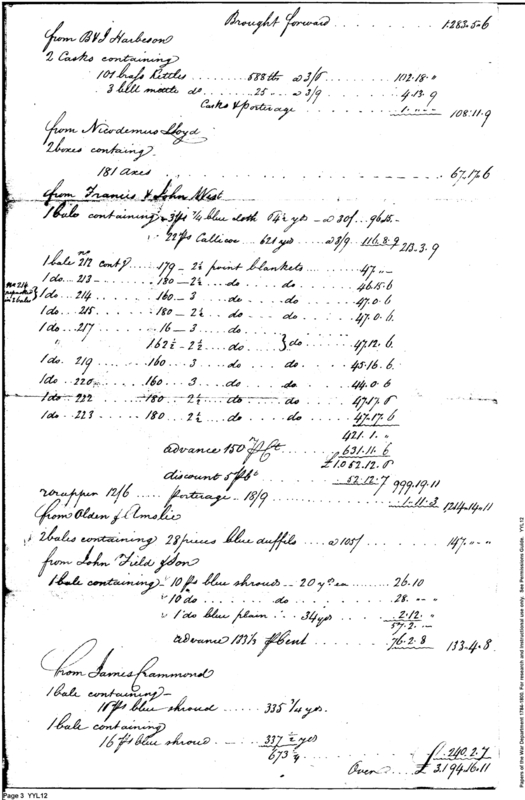 Brought forward ........ 1.283.5.6
from B & J Harbeson
2 Casks containing
101 brass Kettles ....... 588 lb a 3/6 ..... 102.18."
3 bell mettle do ..... 25 .. a 3/9 ..... 4.13.9
Casks & porterage ..... 1."." 108.11.9
from Nicodemus Lloyd
2 boxes containg.
181 axes ..... 67.17.6
from Francis & John West
1 bale containing 3 ps 7/4 blue cloth 64½ yds - a 30/. 96.15.-
22 ps Callicoe 621 yds a 3/9 116.8.9 213.3.9
1 bale no 212 contg 179 - 2½ point blankets .... 47."."
1 do... 213 ..... 180 - 2½ ... do do .... 46.15.6
no 214 repacked in 2 bales
1 do... 214 ..... 160 - 3 do do .... 47.0.6
1 do... 215 ..... 180 - 2½ do do .... 47.0.6
1 do... 217 ..... 16 - 3 do
" 162½ - 2½ do } do .... 47.12.6
1 do. 219 ..... 160 . 3 do do .... 45.16.6
1 do... 220 ..... 160 . 3 do do .... 44.0.6
1 do... 222 ..... 180 . 2½ do do .... 47.17.6
1 do... 223 ..... 180 . 2½ do do .... 47.17.6
421.1."
advance 150 P Ct ... 631.11.6
£1.052.12.6
discount 5 P Ct .... 52.12.7 999.19.11
wrapper 12/6 .... porterage 18/9 ..... 1.11.3 1214.14.11
from Olden & Amslie
2 bales containing 28 pieces blue duffils .. a 105/ .... 147."."
from John Field & Son
1 bale containing 10 ps blue shroud - 20 yds ea .... 26.10
" 10 do .... do .... 28."."
" 1 do blue plain .... 34 yds .... 2.12."
57.2."
advance 133⅓ P Cent 76.2.8 133.4.8
from James Crammond
1 bale containing -
16 ps blue shroud ..... 335¾ yds.
1 bale containing
16 ps blue shroud ..... 337½ yds
673¼ £.240.2.7
Over £ 3.194.16.11
Page 3 YYL12
Papers of the War Department 1784-1800. For research and instructional use only. See Permissions Guide. YYL12